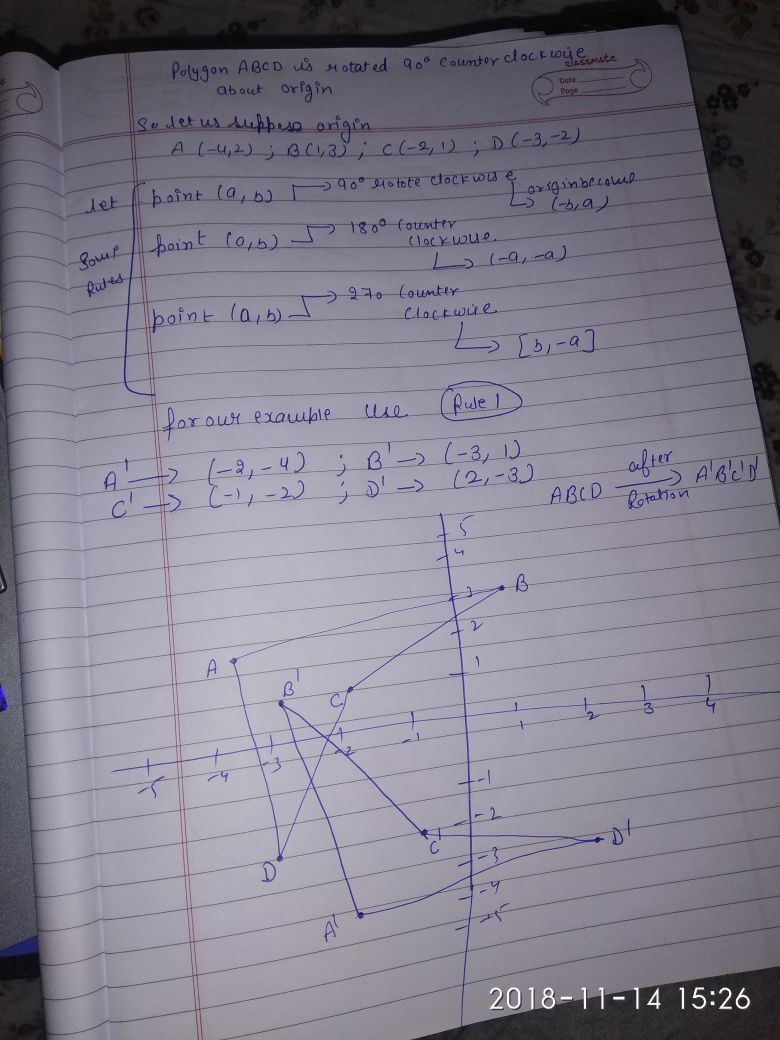 Polygon ABCD is rotated 90° Counter clockwise
about origin
classmate
Date
Page
So let us suppose origin
A (-4,2) ; B(1,3) ; C(-2,1) ; D(-3,-2)
let
Some Rules
point (a,b) → 90° rotate clockwise
↳ origin become
(-b,a)
point (a,b) → 180° Counter
clockwise
↳ (-a, -a)
point (a,b) → 270 Counter
clockwise
↳ [b,-a]
for our example Use Rule 1
A' → (-2,-4) ; B' → (-3, 1)
C' → (-1,-2) ; D' → (2,-3)
ABCD after Rotation → A'B'C'D'
5
4
3
B
2
A
1
B'
C
-5
-4
-3
-2
-1
1
2
3
4
-1
-2
C'
D'
-3
D
-4
A'
-5
2018-11-14 15:26